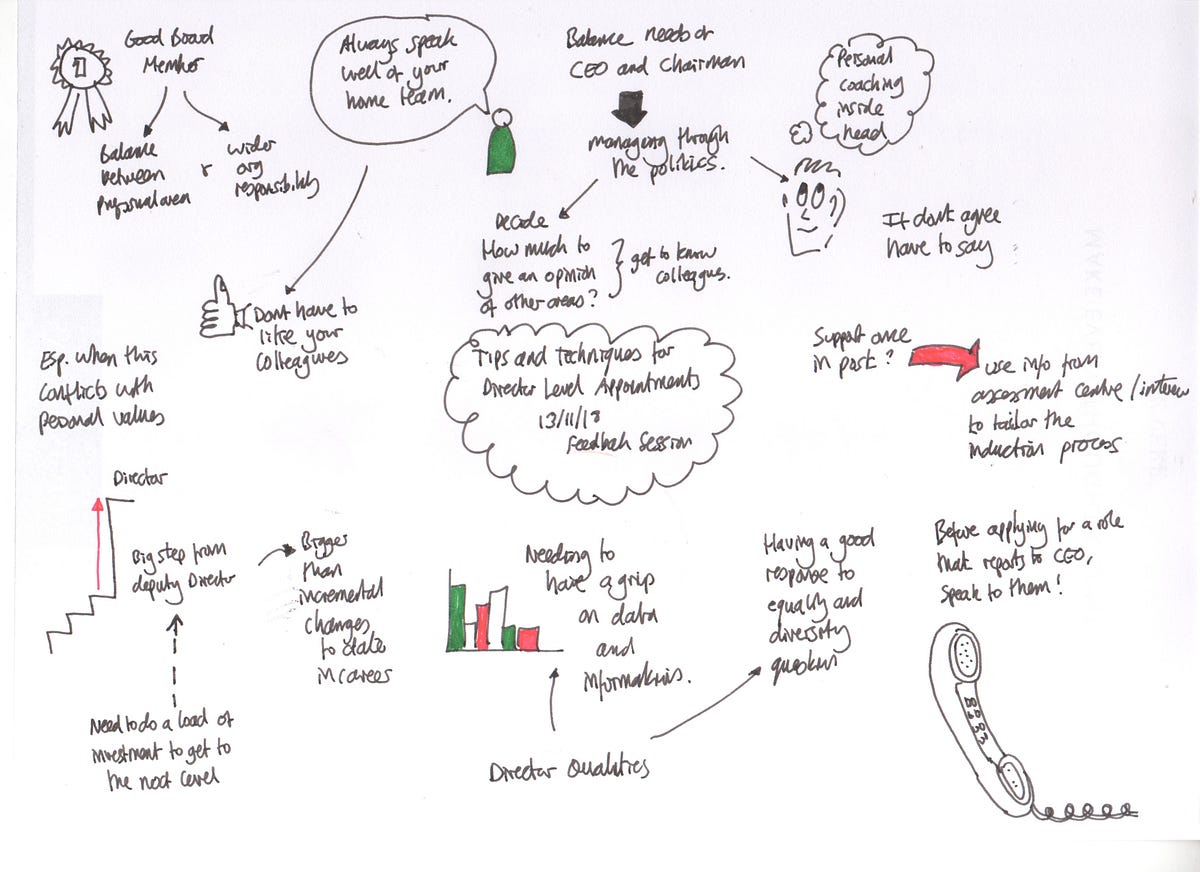 1
Good Board
Member
Balance
between
professional area
&
wider
org
responsibility
Always speak
well of your
home team.
Don't have to
like your
colleagues
Balance needs of
CEO and Chairman
managing through
the politics.
Decide
How much to
give an opinion
of other areas?
get to know
colleagues.
Personal
coaching
inside
head
If don't agree
have to say
Esp. when this
conflicts with
personal values
Tips and Techniques for
Director Level Appointments
13/11/18
Feedback Session
Support once
in post?
use info from
assessment centre/interview
to tailor the
induction process
Director
Big step from
deputy Director
Bigger
than
incremental
changes
to date
in career
Need to do a load of
investment to get to
the next level
Needing to
have a grip
on data
and
Having a good
response to
equality and
diversity
question
Director Qualities
Before applying for a role
that reports to CEO,
speak to them!